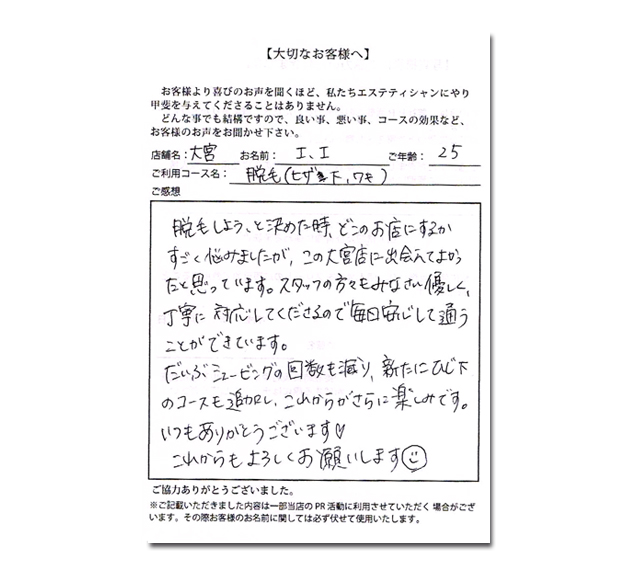 【大切なお客様へ】
お客様より喜びのお声を聞くほど、私たちエステティシャンにやり
甲斐を与えてくださることはありません。
どんな事でも結構ですので、良い事、悪い事、コースの効果など、
お客様のお声をお聞かせ下さい。
店舗名：大宮 お名前：I、I ご年齢：25
ご利用コース名：脱毛(ヒザ下、ワキ)
ご感想
脱毛しよう、と決めた時、どこのお店にするか
すごく悩みましたが、この大宮店に出会えてよかっ
たと思っています。スタッフの方々もみなさい優しく、
丁寧に対応してくださるので毎日安心して通う
ことができています。
だいぶシェービングの回数も減り、新たにひじ下
のコースも追加し、これからがさらに楽しみです。
いつもありがとうございます♡
これからもよろしくお願いします☺
ご協力ありがとうございました。
※ご記載いただきました内容は一部当店のPR活動に利用させていただく場合がござ
います。その際お客様のお名前に関しては必ず伏せて使用いたします。